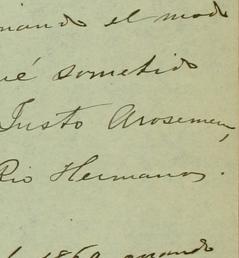 nando el mod
ué sometido
Justo Arosemen,
Rio Hermanos.
1860 cuando